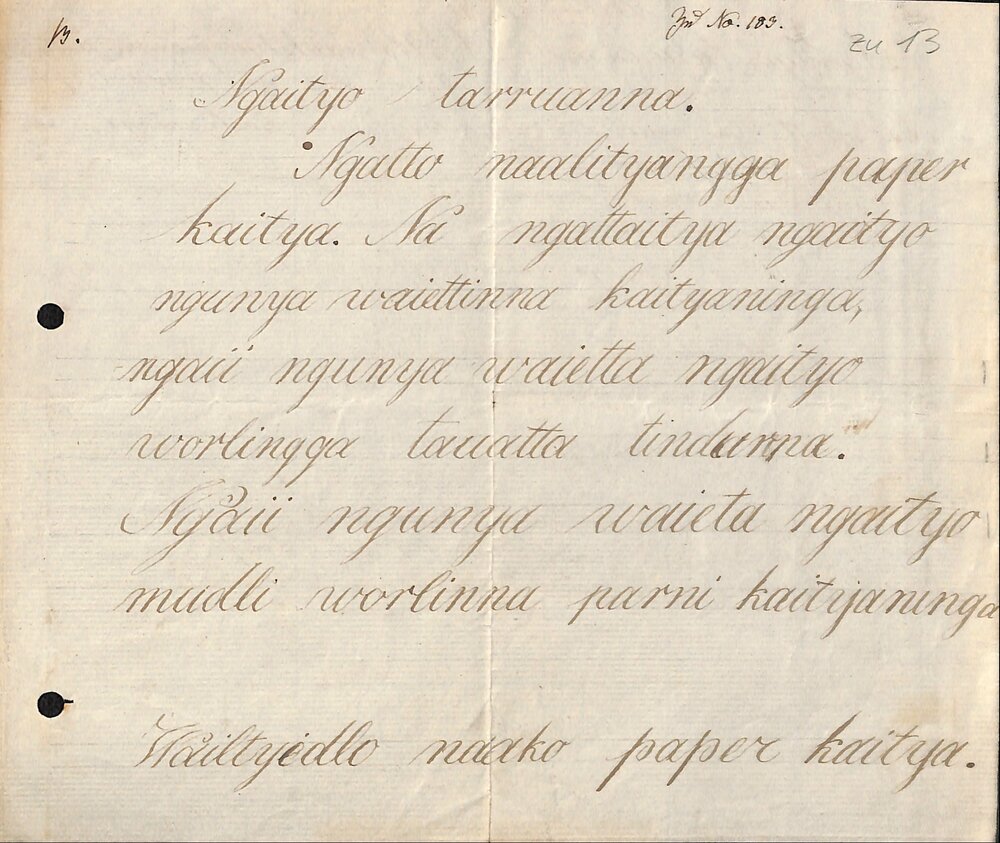 13.
Ind No. 183.
zu 13
Ngaityo tarruanna.
Ngatto naalityangga paper
kaitya. Na ngattaitya ngaityo
ngunya waiettinna kaityaninga,
ngaii ngunya waietta ngaityo
worlingga tauatta tindurna.
Ngaii ngunya waieta ngaityo
mudli worlinna parni kaityaninga
Wailtyidlo naako paper kaitya.